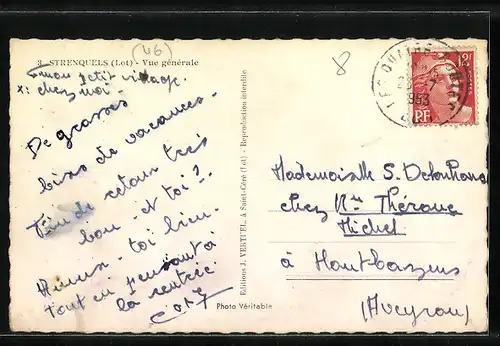 3. STRENQUELS (Lot) - Vue générale
(46)
mon petit village
x: chez moi.
De grosses
bises de vacances.
de retour très
bon. et toi?.
toi bien.
tout en pensant à
la rentrée.
Editions J. VERTUEL, à Saint-Céré (Lot) - Reproduction interdite
Photo Véritable
8
12F
RF
Mademoiselle S.
chez Mr Thérone
Michel
à
(Aveyron)